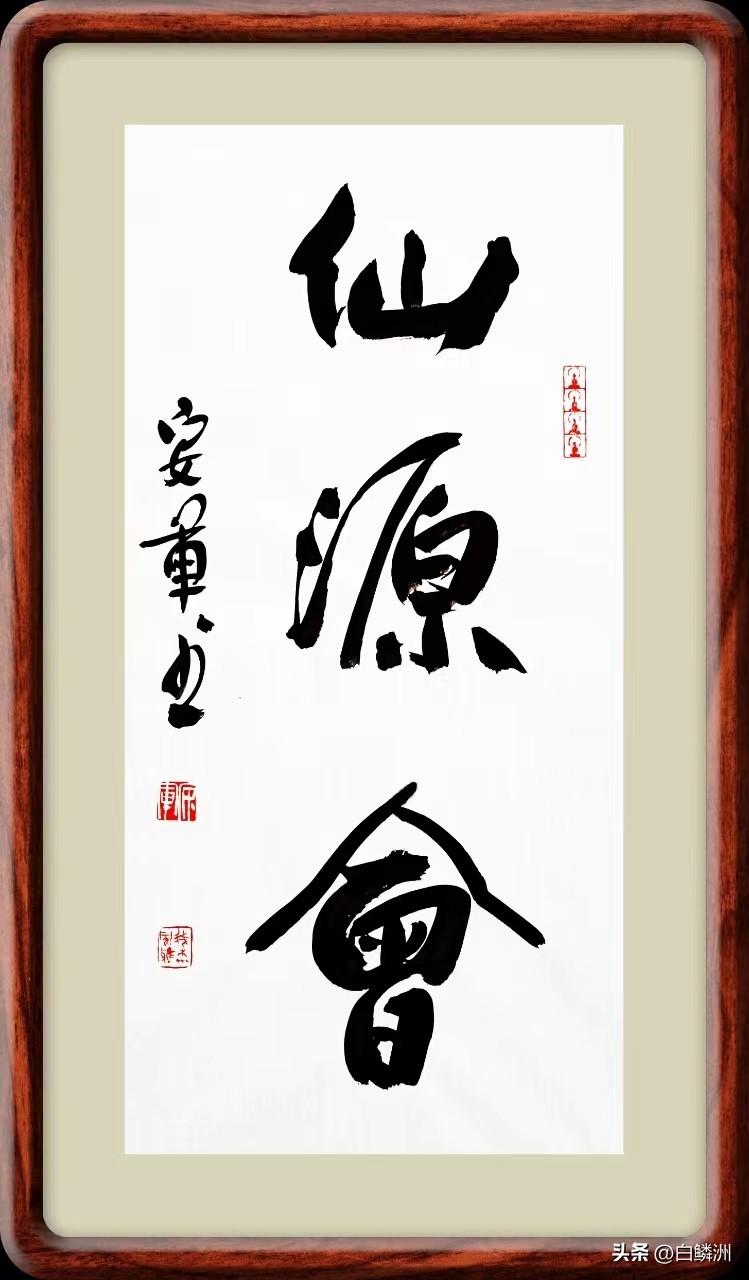 仙源會
安軍书
头条 @白鳞洲